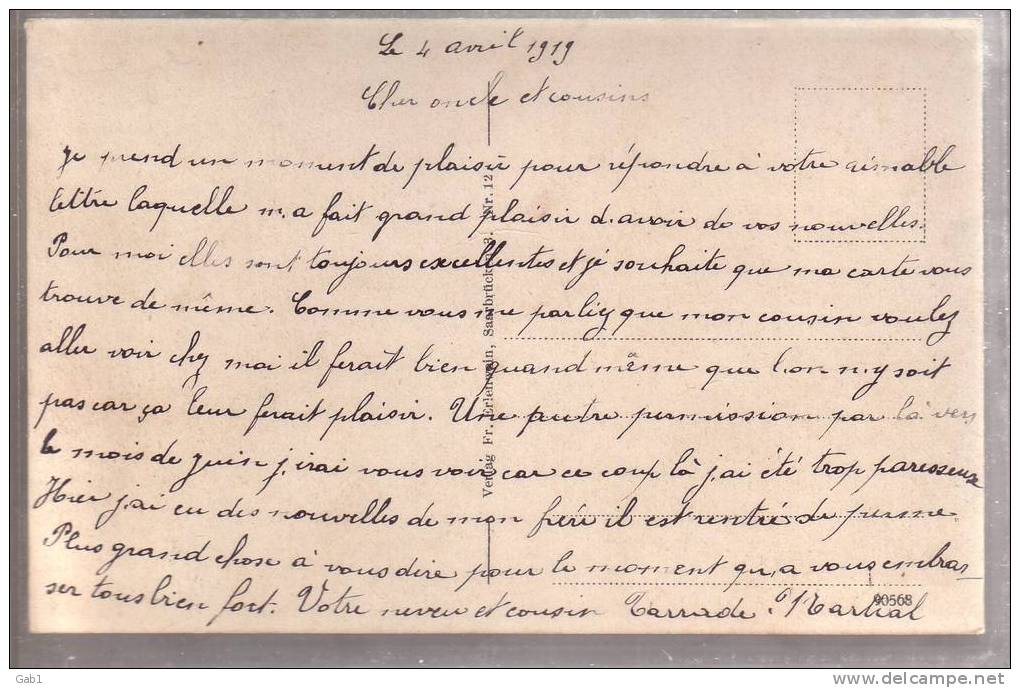 Le 4 avril 1919
Cher oncle et cousins
Je prend un moment de plaisir pour répondre à votre aimable
lettre laquelle m.a fait grand plaisir d.avoir de vos nouvelles.
Pour moi elles sont toujours excellentes et je souhaite que ma carte vous
trouve de même. Comme vous me parliez que mon cousin voulez
aller voir chez moi il ferait bien quand même que l.on n.y soit
pas car ça leur ferait plaisir. Une autre permission par là vers
le mois de juin j.irai vous voir car ce coup là j.ai été trop paresseux
Hier j.ai eu des nouvelles de mon frère il est rentré de perme.
Plus grand chose à vous dire pour le moment qu.a vous embras-
ser tous bien fort. Votre neveu et cousin Tarrade Martial
Verlag Fr. Erlenwein, Saarbrücken 3. Nr. 12
90568
Gab1
delcampe.net